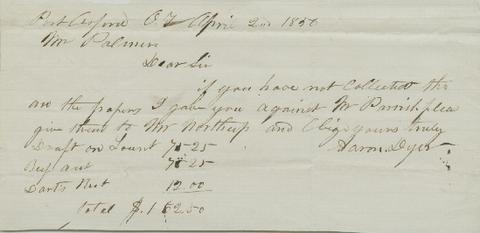 Port Orford O.T. April 2nd 1856
Mr Palmer
Dear Sir
if you have not Collected the
on the papers I gave you against Mr Parrish pleas
give them to Mr Northrup and Oblige yours truly
Draft on 75-25 Aaron Dyer
Beef act 75-25
Darts Note 12.00
Total $.162.50